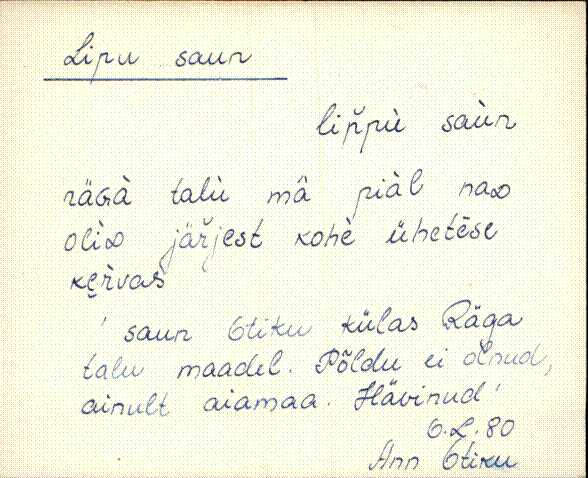 Lipu saun
lip̌pù saùn
räGà talù mä piàl naD
olìD jäřjest kohè ühetēse
kęr̀vas
' saun Otiku külas Räga
talu maadel. Põldu ei olnud,
ainult aiamaa. Hävinud'
O.L. 80
Ann Otiku